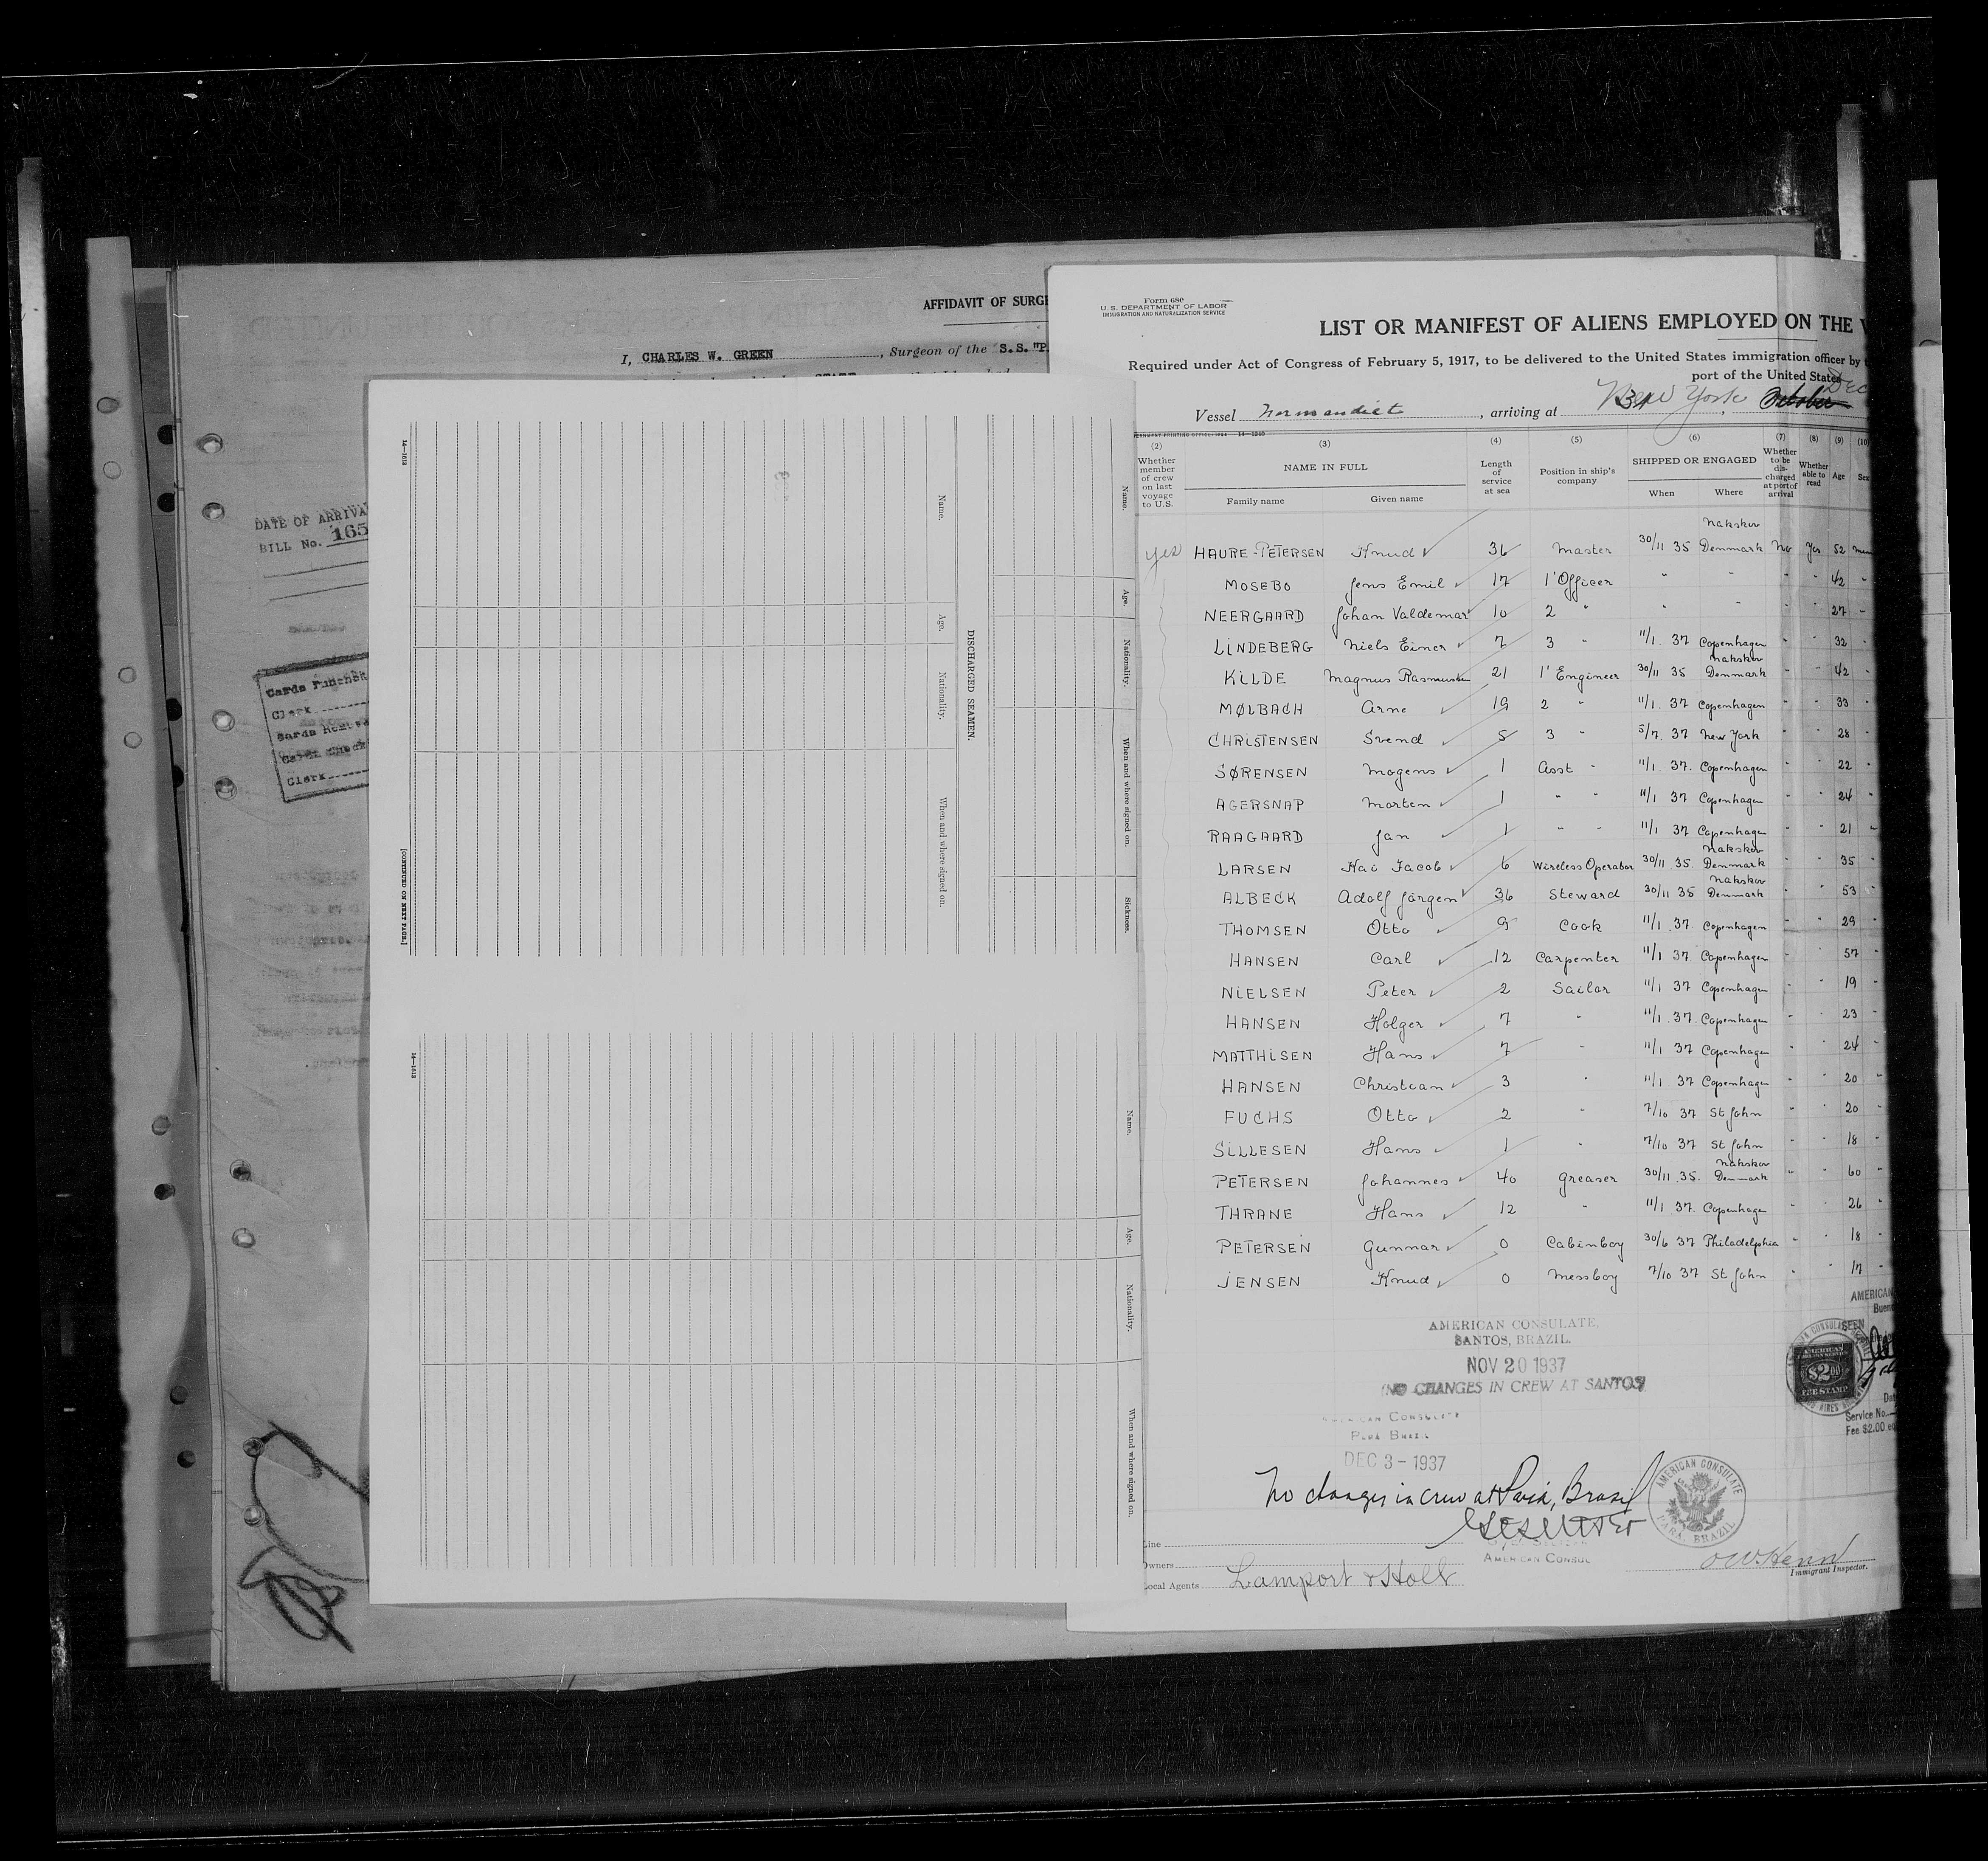 AFFIDAVIT OF SURGE
I, CHARLES W. GREEN, Surgeon of the S.S. "P
DATE OF ARRIVA
BILL No. 165
Cards Punched
Clerk
Clerk
14—1813
Name.
Age.
Nationality.
When and where signed on.
Sickness.
DISCHARGED SEAMEN.
Name.
Age.
Nationality.
When and where signed on.
[CONTINUED ON NEXT PAGE.]
14—1813
Name.
Age.
Nationality.
When and where signed on.
Form 680
U. S. DEPARTMENT OF LABOR
IMMIGRATION AND NATURALIZATION SERVICE
LIST OR MANIFEST OF ALIENS EMPLOYED ON THE V
Required under Act of Congress of February 5, 1917, to be delivered to the United States immigration officer by
port of the United States
Vessel Normandiet, arriving at New York, October Dec
(2) (3) (4) (5) (6) (7) (8) (9) (10)
Whether member of crew on last voyage to U.S.
NAME IN FULL
Family name Given name
Length of service at sea
Position in ship's company
SHIPPED OR ENGAGED
When Where
Whether to be discharged at port of arrival
Whether able to read
Age
Sex
Yes HAURE-PETERSEN Knud 36 Master 30/11 35 Nakskov Denmark No Yes 52
MOSEBO Jens Emil 17 1' Officer " " " " 42 "
NEERGAARD Johan Valdemar 10 2 " " " " " 27 "
LINDEBERG Niels Einer 7 3 " 11/1 37 Copenhagen " " 32 "
KILDE Magnus Rasmussen 21 1' Engineer 30/11 35 Nakskov Denmark " " 42 "
MØLBACH Arne 19 2 " 11/1 37 Copenhagen " " 33 "
CHRISTENSEN Svend 5 3 " 5/7 37 New York " " 28 "
SØRENSEN Mogens 1 Asst " 11/1 37. Copenhagen " " 22 "
AGERSNAP Morten 1 " " 11/1 37 Copenhagen " " 24 "
RAAGAARD Jan 1 " " 11/1 37 Copenhagen " " 21 "
LARSEN Kai Jacob 6 Wireless Operator 30/11 35. Nakskov Denmark " " 35 "
ALBECK Adolf Jörgen 36 Steward 30/11 35 Nakskov Denmark " " 53 "
THOMSEN Otto 9 Cook 11/1 37. Copenhagen " " 29 "
HANSEN Carl 12 Carpenter 11/1 37. Copenhagen " " 57 "
NIELSEN Peter 2 Sailor 11/1 37 Copenhagen " " 19 "
HANSEN Holger 7 " 11/1 37. Copenhagen " " 23 "
MATTHISEN Hans 7 " 11/1 37 Copenhagen " " 24 "
HANSEN Christian 3 " 11/1 37 Copenhagen " " 20 "
FUCHS Otto 2 " 7/10 37 St John " " 20 "
SILLESEN Hans 1 " 7/10 37 St John " " 18 "
PETERSEN Johannes 40 Greaser 30/11 35. Nakskov Denmark " " 60 "
THRANE Hans 12 " 11/1 37. Copenhagen " " 26 "
PETERSEN Gunnar 0 Cabinboy 30/6 37 Philadelphia " " 18 "
JENSEN Knud 0 Messboy 7/10 37 St John " " 17 "
AMERICAN
Buen
SEEN
AMERICAN CONSULATE,
SANTOS, BRAZIL.
NOV 20 1937
(NO CHANGES IN CREW AT SANTOS)
$2.00
FEE STAMP
Service No.
Fee $2.00
AMERICAN CONSULATE
PARÁ BRAZIL
DEC 3 - 1937
No changes in crew at Pará, Brazil
AMERICAN CONSULATE
PARA, BRAZIL
AMERICAN CONSUL
Line
Owners
Local Agents Lamport & Holt
Immigrant Inspector.